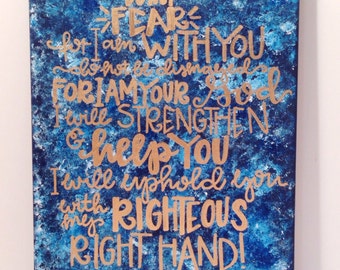 FEAR
for I am WITH YOU
do not be dismayed
FOR I AM YOUR God
I will STRENGTHEN
& help YOU
I will uphold you
with my RIGHTEOUS
RIGHT HAND!